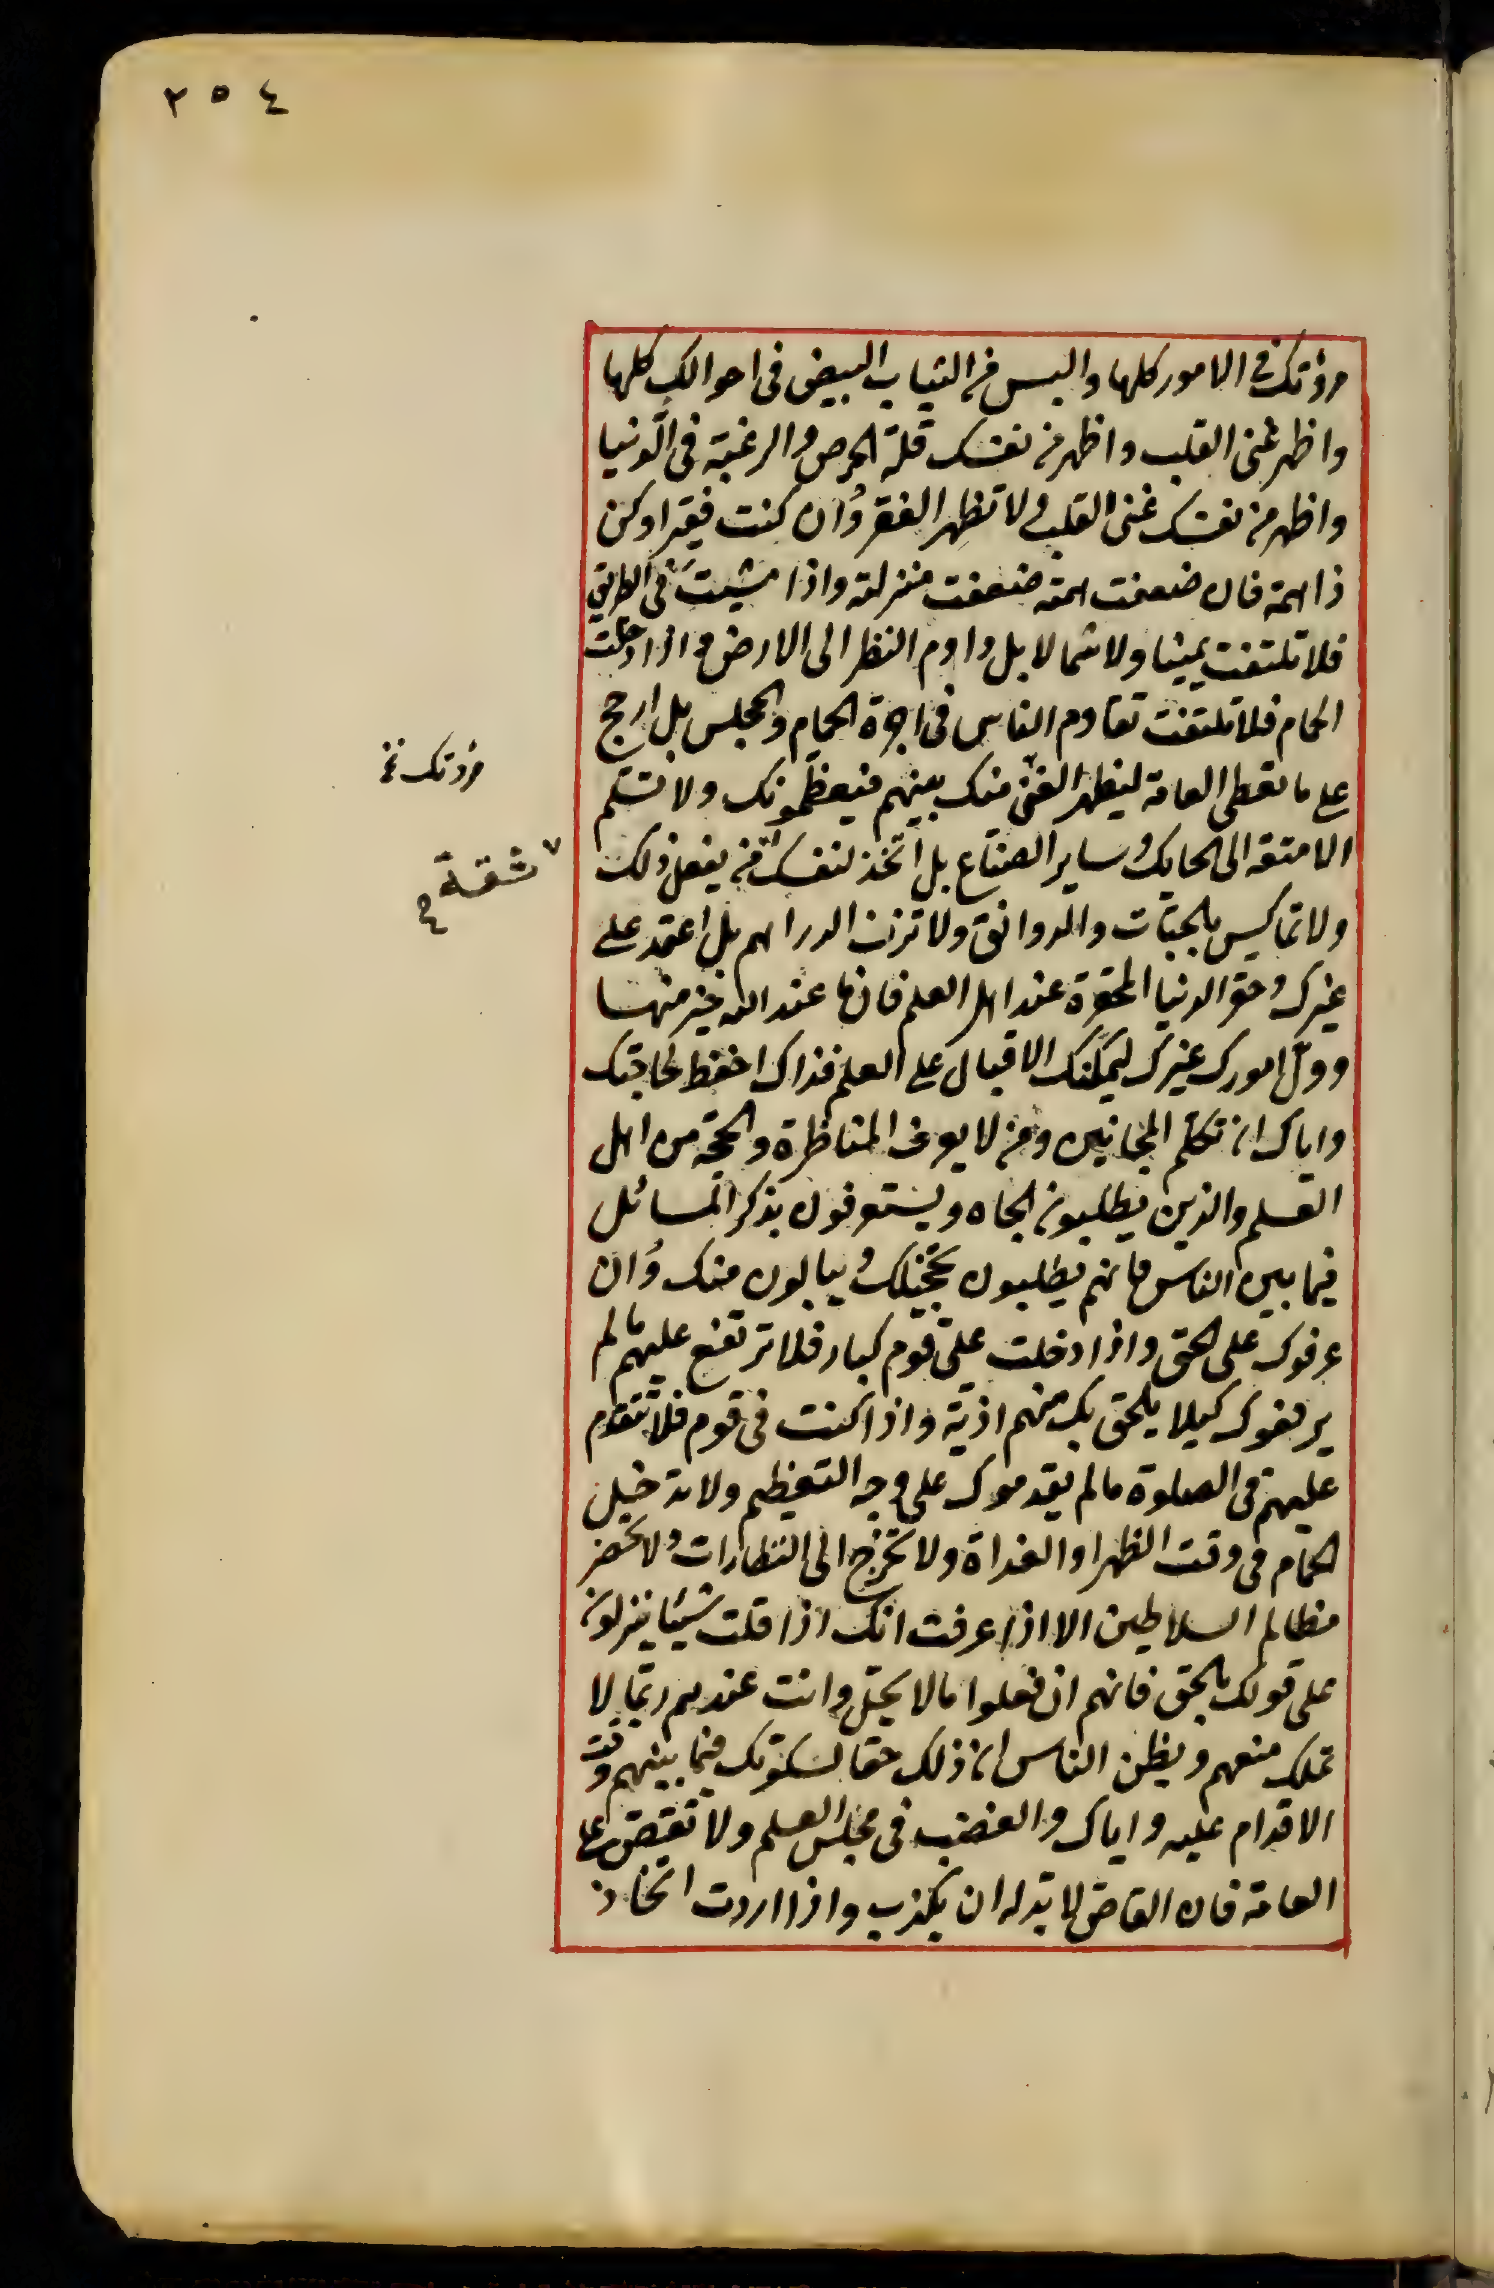 ٢٥٤
مروتك في الامور كلها والبس من الثياب البيض فى احوالك كلها
واظهر غنى القلب واظهر من نفسك قلة الحرص والرغبة فى الدنيا
واظهر من نفسك غنى القلب ولا تظهر الفقر وان كنت فقيرا وكن
ذا همة فان ضعفت همته ضعفت منزلته واذا مشيت فى الطريق
فلا تلتفت يمينا ولا شمالا بل داوم النظر الى الارض واذا دخلت
الحمام فلا تلتفت تقاوم الناس فى اجرة الحمام والمجلس بل ارجح
على ما تعطى العامة ليظهر الغنى منك بينهم فيعظمونك ولا تسلم
الامتعة الى الحايك وساير الصناع بل اتخذ لنفسك من يفعل ذلك
ولا تماكس بالحبات والدوانق ولا تزن الدراهم بل اعتمد على
غيرك وحقر الدنيا المحقرة عند اهل العلم فان ما عند الله خير منها
وول امورك غيرك ليمكنك الاقبال على العلم فذاك احفظ لحاجتك
واياك ان تكلم المجانين ومن لا يعرف المناظرة والحجة من اهل
العلم والذين يطلبون الجاه ويستعرفون بذكر المسائل
فيما بين الناس فانهم يطلبون تخجيلك ولا يبالون منك وان
عرفوك على الحق واذا دخلت على قوم كبار فلا ترتفع عليهم ما لم
يرفعوك كيلا يلحق بك منهم اذية واذا كنت فى قوم فلا تتقدم
عليهم فى الصلوة ما لم يقدموك على وجه التعظيم ولا تدخل
الحمام فى وقت الظهر او الغداة ولا تخرج الى النظارات ولا تحضر
مظالم السلاطين الا اذا عرفت انك اذا قلت شيئا ينزلون
على قولك بالحق فانهم ان فعلوا ما لا يحل وانت عندهم ربما لا
تملك منعهم ويظن الناس ان ذلك حقا لسكوتك فيما بينهم وقت
الاقدام عليه واياك والغضب فى مجلس العلم ولا تقص على
العامة فان القاص لا بد له ان يكذب واذا اردت اتخاذ
مروتك نخ
شقة